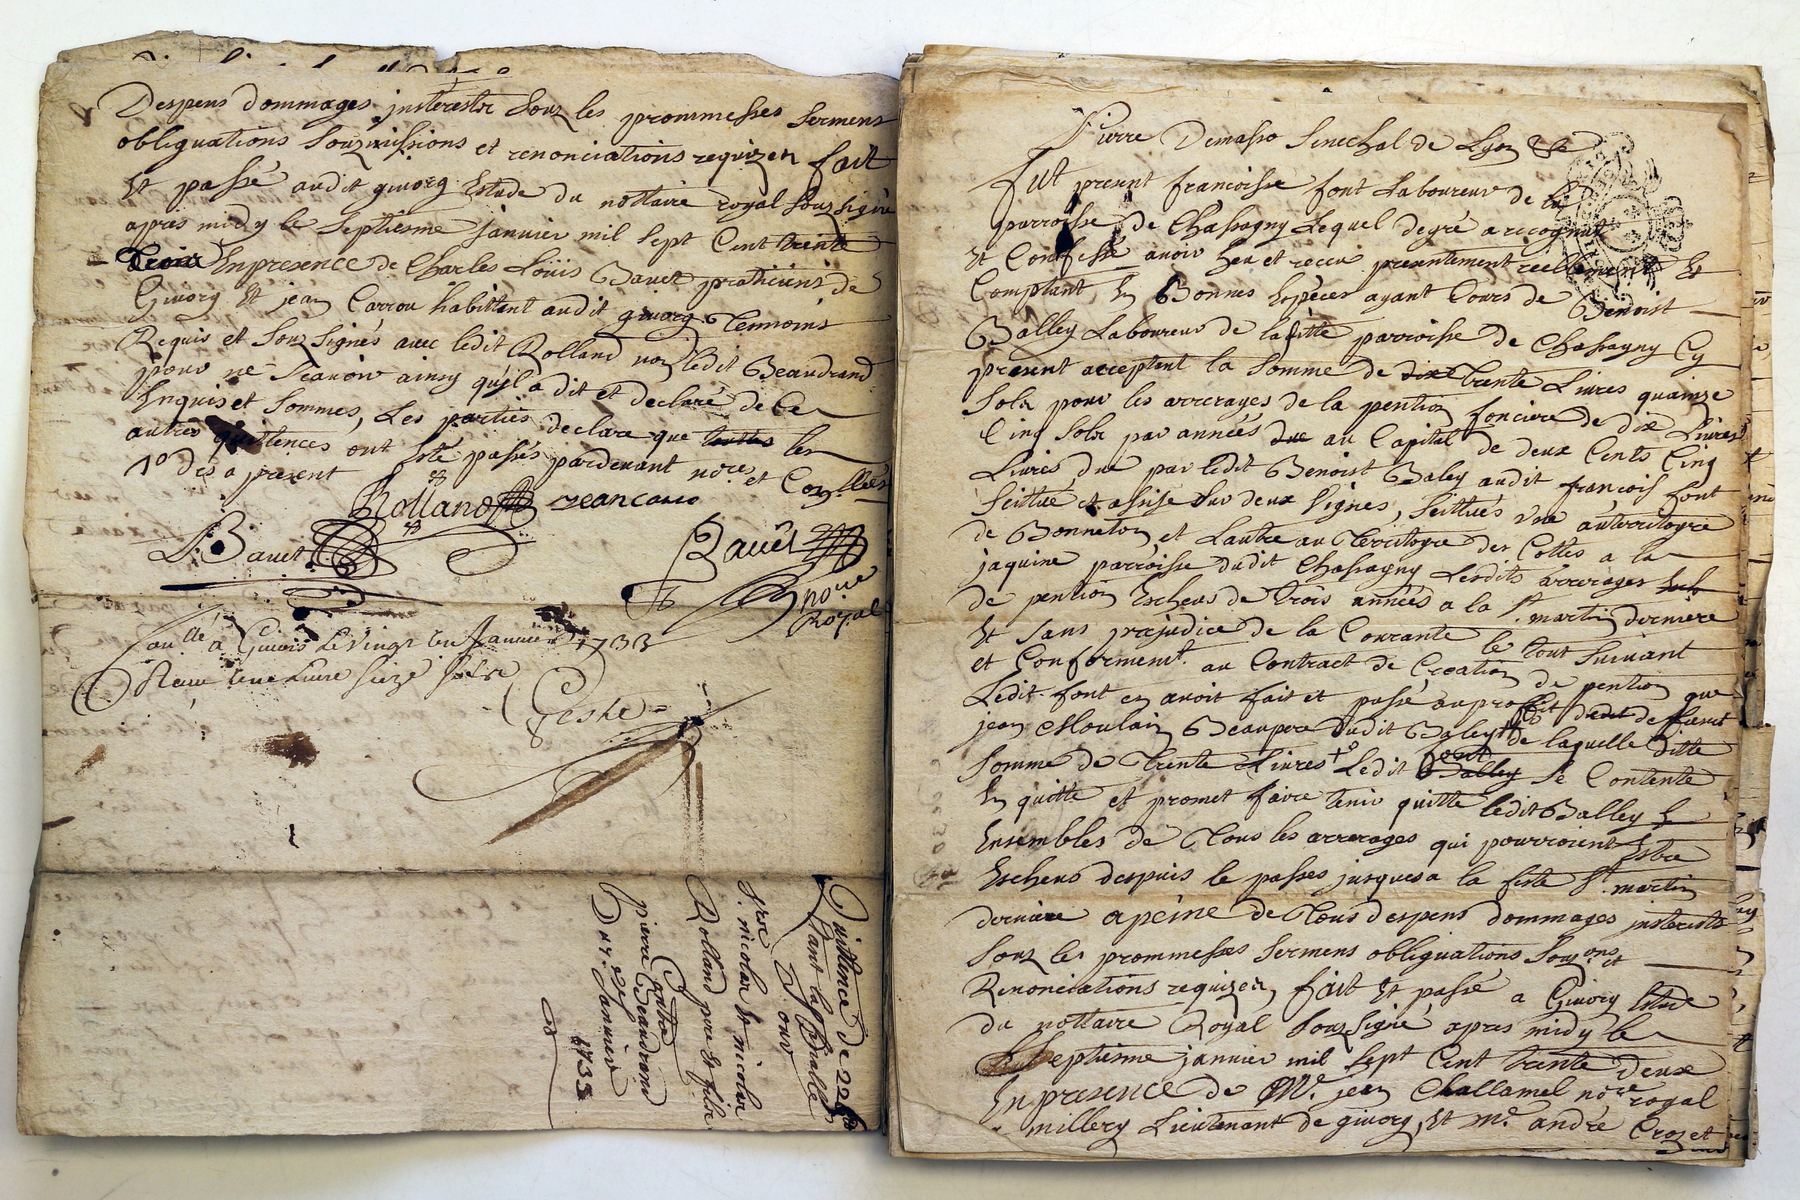 Despens dommages jnsterestz souz les prommesses sermens
obliguations souzmissions et renonciations requizen fait
Et passé audit givorg Estude du nottaire royal souz signé
apres midy le septiesme janvier mil sept Cent trente
trois En presence de Charles Loüis Bavet praticiens de
Givorg Et jean Carrou habittant audit givorg Temmoins
Requis et souz signés avec ledit Rolland non ledit Beaudrand
pour ne scavoir ainsy qu'jl a dit et declaré de Ce
Enquis et sommes, Les parties declare que toutes les
autres quittences ont Esté passés pardevant no.res et Con.lées
1° dès a present
Rolland jean carro
L Bavet Bavet
no.re
Royal
Con.llé a Givors le vingt un Janvier 1733
Receu une Livre seize sols
Geshe
Quittence de 22
Pierre Beaudrand
Du 7.e Janvier
1733
Rolland pere Et filz
Contre
s.r nicolas Et nicolas
Pour
Pierre Demasso Senechal de Lyon &a
Fut present francoisse font Laboureur de la
parroisse de Chassagny Lequel de gré a recognut
Et Confessé avoir heu et receu presentement reellement Et
Comptant En Bonnes Especes ayant Cours de Benoist
Balley Laboureur de laditte parroisse de Chassagny Cy
present acceptent la somme de dix trente Livres quainze
solz pour les arrerages de la pention fonciere de dix Livres
Cinq solz par années due au Capital de deux Cents Cinq
Livres due par ledit Benoist Baley audit francois font
scittué et assise sur deux vignes, scittués une auterritoyre
de Bonneton et Lautre au Territoyre des Cottes a la
jaquine parroisse dudit Chassagny Lesdits arrerages
de pention Escheus de trois années a la S.t martin derniere
Et sans prejudice de la Courante le tout suivant
et Conforment. au Contract de Creation de pention que
Ledit font en avoit fait et passé auproffit dudit deffunct
jean Moulain Beaupere dudit Baley de laquelle ditte
somme de trente Livres Ledit font Balley se Contente
En quitte et promet faire tenir quitte ledit Balley
Ensembles de Tous les arrerages qui pourroient Estre
Escheus despuis le passes jusques a la feste S.t martin
derniere a peine de Tous despens dommages jnsterests
souz les prommesses sermens obliguations souz.ons et
Renonciations requizen, fait Et passé a Givorg Estude
du nottaire Royal souz signé apres midy le
septiesme janvier mil sept Cent trente deux
En presence de M.e jean Challamel no.re royal
millery Lieutenant de givorg, Et m.e andré Crozet